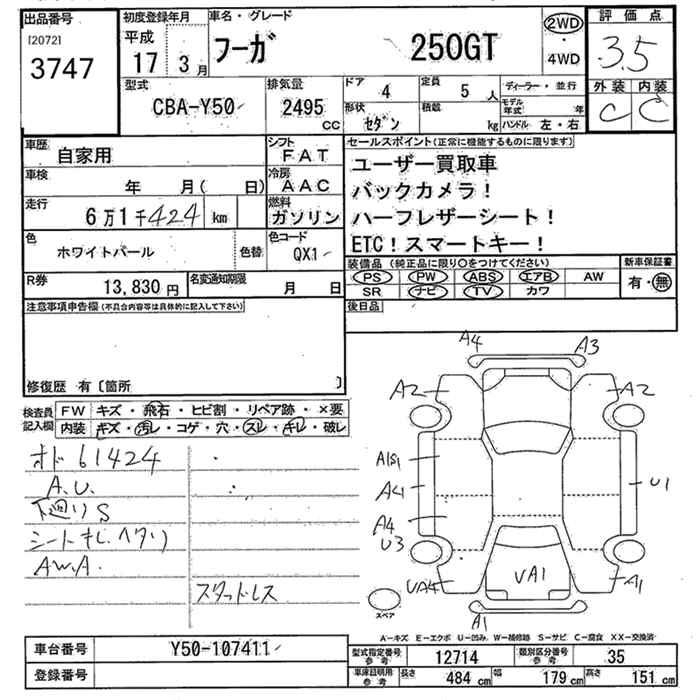 出品番号
[2072]
3747
初度登録年月
平成
17 3 月
車名・グレード
フーガ 250GT
2WD
・4WD
評価点
3.5
外装 内装
C C
型式
CBA-Y50
排気量
2495
CC
ドア 4
定員 5 人
形状 セダン
積載 kg
ディーラー・並行
モデル年式 年
ハンドル 左・右
車歴
自家用
シフト
FAT
車検
年 月( 日)
冷房
AAC
走行
6万1千424 km
燃料
ガソリン
色
ホワイトパール
色替
色コード
QX1
R券
13,830 円
名変通知期限
月 日
セールスポイント(正常に機能するものに限ります)
ユーザー買取車
バックカメラ!
ハーフレザーシート!
ETC!スマートキー!
装備品(純正品に限り○をつけてください)
PS PW ABS エアB AW
SR ナビ TV カワ
新車保証書
有・無
注意事項申告欄(不具合内容等は具体的に記入して下さい)
後日品
修復歴 有〔箇所 〕
検査員
記入欄
FW キズ・飛石・ヒビ割・リペア跡・×要
内装 キズ・汚レ・コゲ・穴・スレ・キレ・破レ
オド 61424
A.U.
下廻りS
シートキレ ヘタリ
AW.A.
スタッドレス
A4 A3
A2 A2
A1S1
A41
A4
U3
UA4
U1
VA1
A1
A1
スペア
A-キズ E-エクボ U-凹み W-補修跡 S-サビ C-腐食 XX-交換済
車台番号
Y50-107411
登録番号
型式指定番号
参考
12714
類別区分番号
参考
35
車庫証明用
参考
長さ 484 cm
幅 179 cm
高さ 151 cm